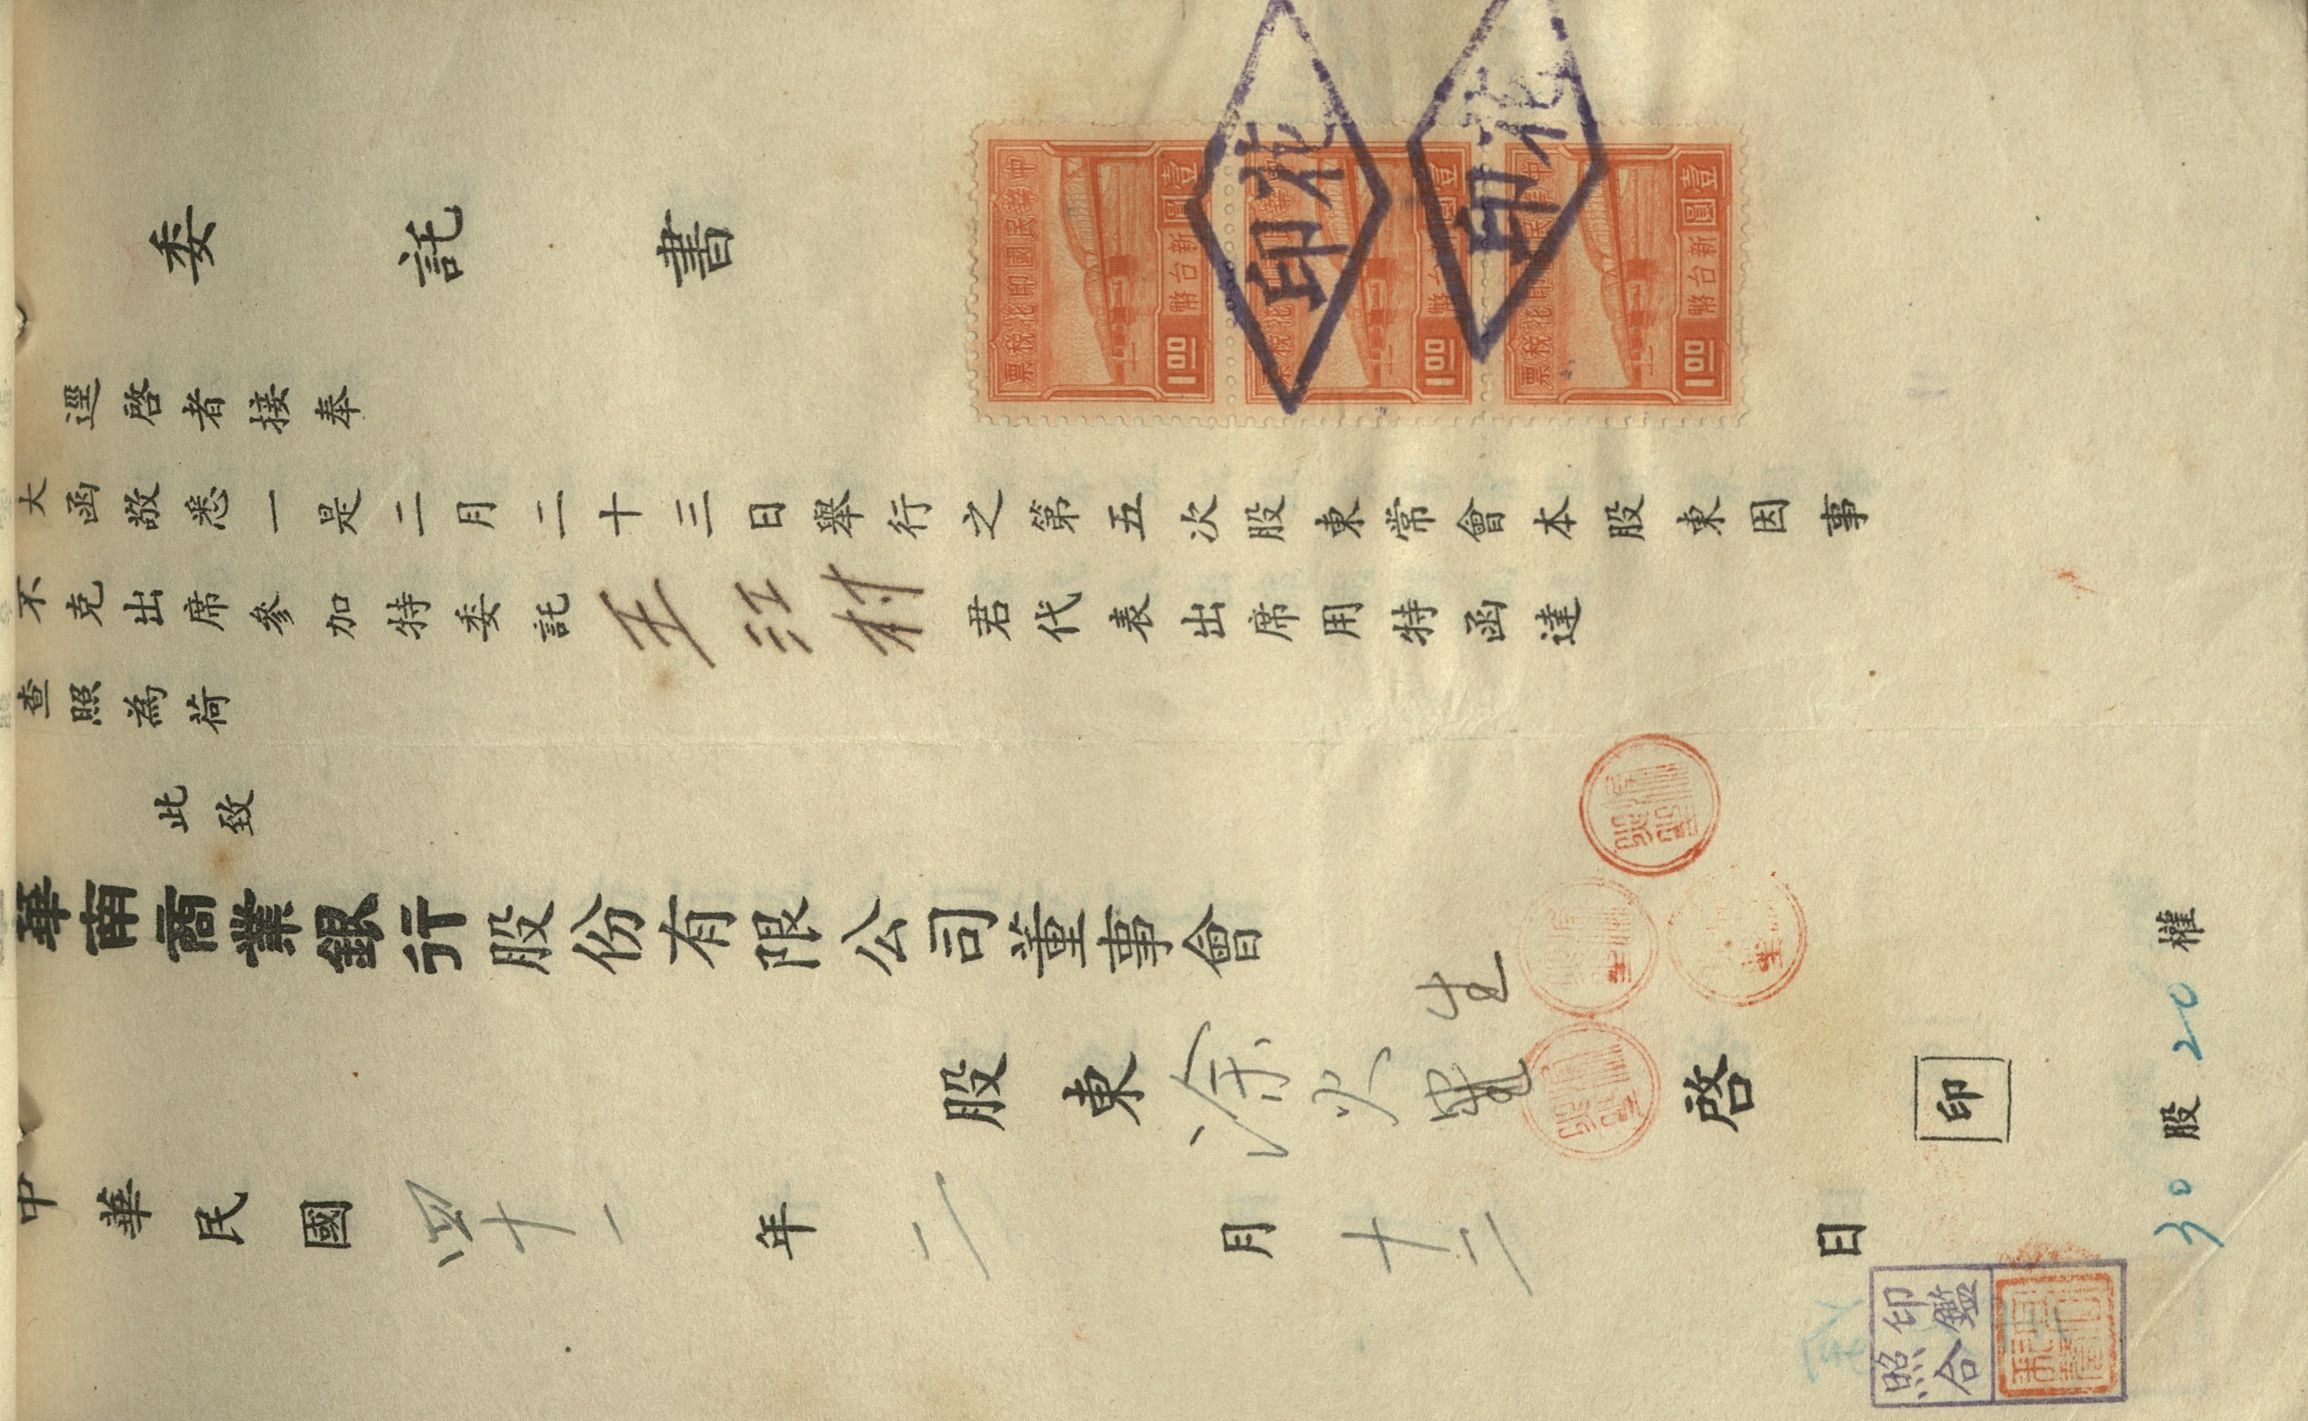 委託書
逕啓者接奉
大函敬悉一是二月二十三日舉行之第五次股東常會本股東因事
不克出席參加特委託王江村君代表出席用特函達
查照為荷
此致
華南商業銀行股份有限公司董事會
股東涂火生啓
印
中華民國四十一年二月十二日
30股20權
中華民國印花稅票
壹圓
新台幣
1.00
壹圓
新台幣
1.00
壹圓
新台幣
1.00
印花
印花
印鑑
照合